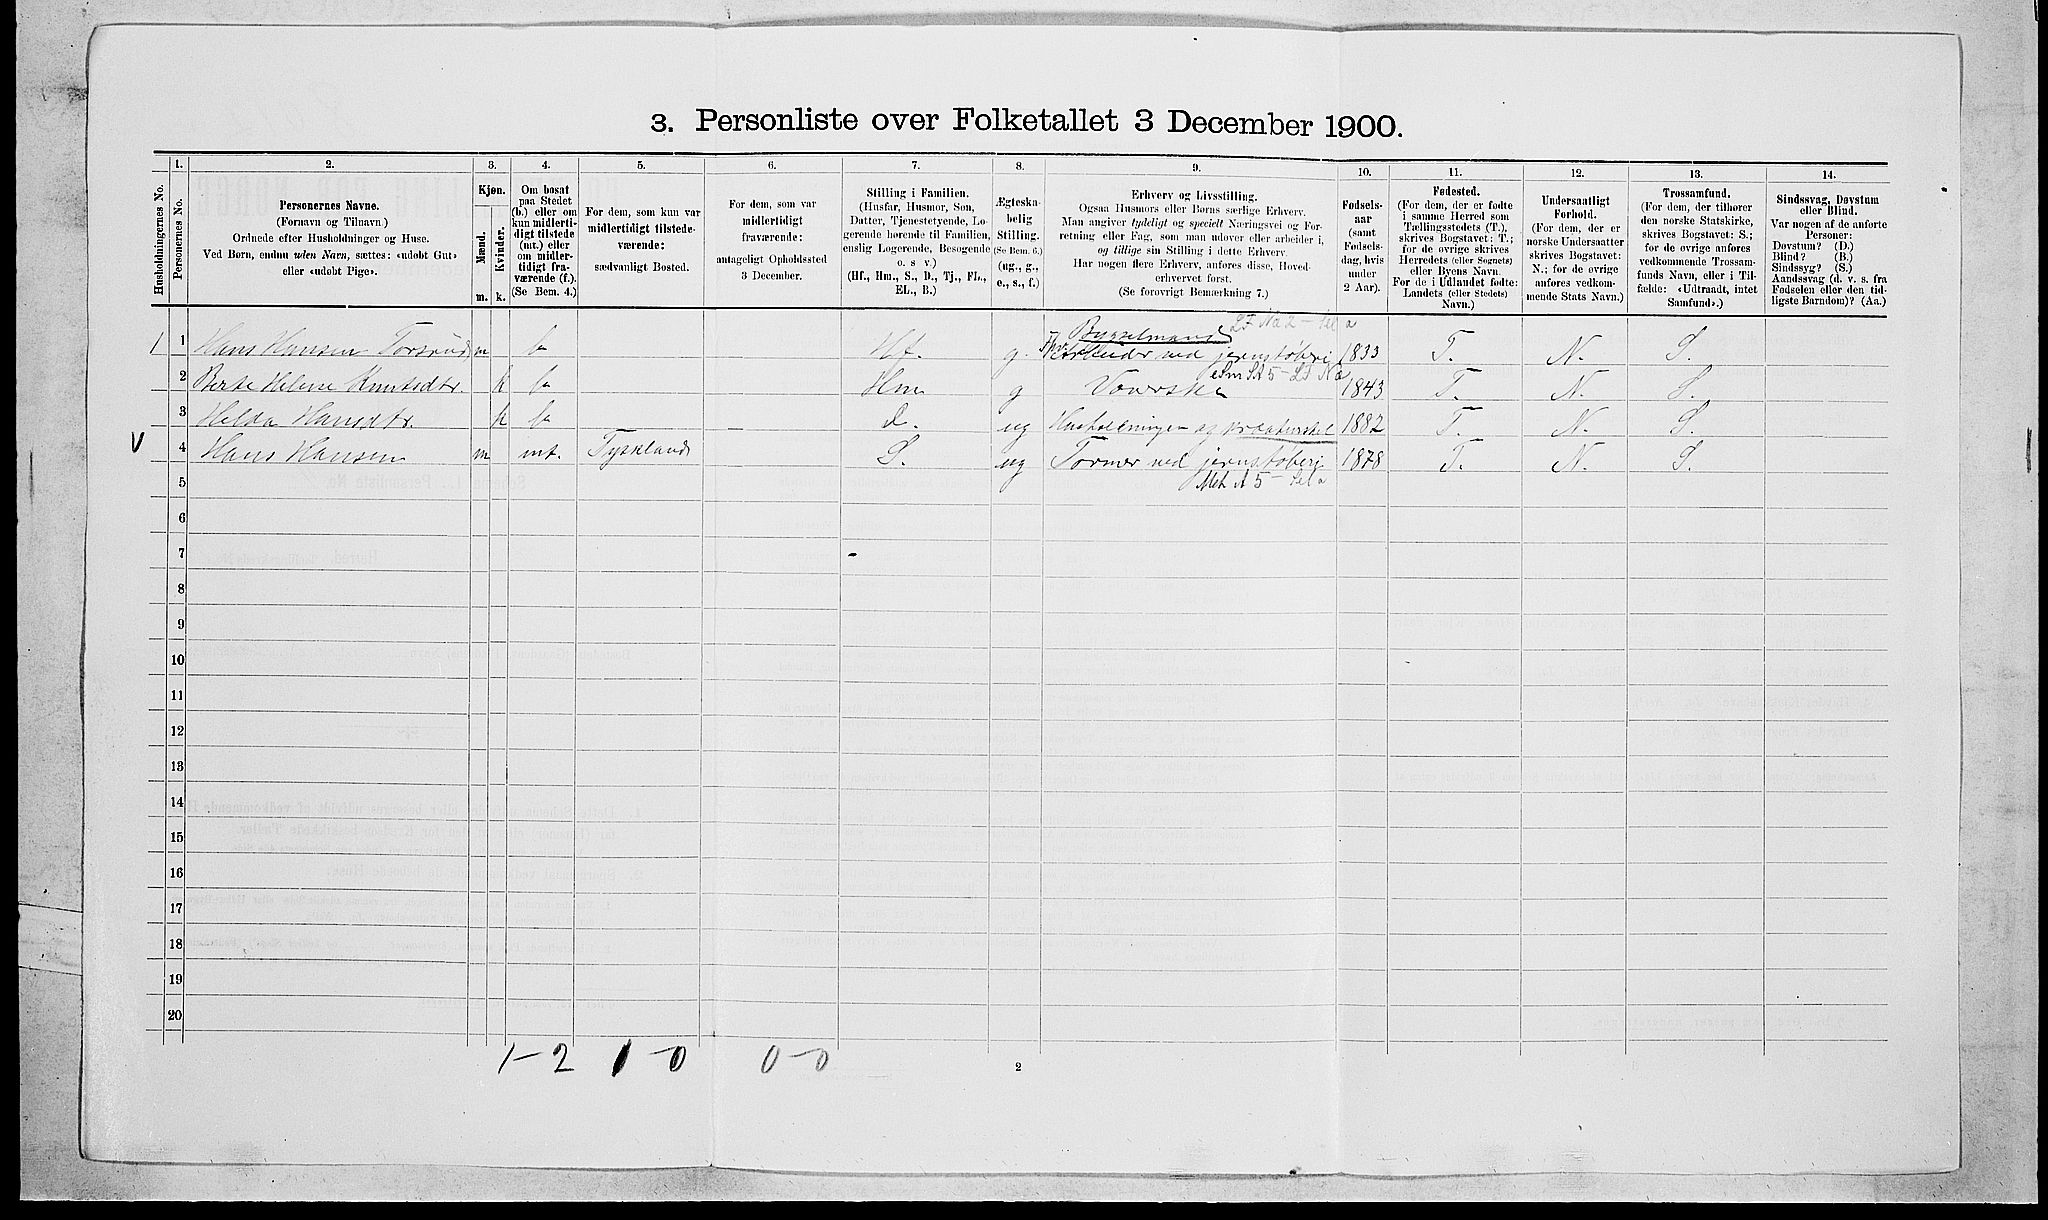 3. Personliste over Folketallet 3 December 1900.
1. 2. 3. 4. 5. 6. 7. 8. 9. 10. 11. 12. 13. 14.
Husholdningernes No.
Personernes No.
Personernes Navne.
(Fornavn og Tilnavn.)
Ordnede efter Husholdninger og Huse.
Ved Børn, endnu uden Navn, sættes: «udøbt Gut»
eller «udøbt Pige».
Kjøn.
Mænd.
Kvinder.
m. k.
Om bosat
paa Stedet
(b.) eller om
kun midlerti-
digt tilstede
(mt.) eller
om midler-
tidigt fra-
værende (f.).
(Se Bem. 4.)
For dem, som kun var
midlertidigt tilstede-
værende:
sædvanligt Bosted.
For dem, som var
midlertidigt
fraværende:
antageligt Opholdssted
3 December.
Stilling i Familien.
(Husfar, Husmor, Søn,
Datter, Tjenestetyende, Lo-
gerende hørende til Familien,
enslig Logerende, Besøgende
o. s v.)
(Hf., Hm., S., D., Tj., FL.,
EL., B.)
Ægteska-
belig
Stilling.
(Se Bem. 6.)
(ug., g.,
e., s., f.)
Erhverv og Livsstilling.
Ogsaa Husmors eller Børns særlige Erhverv.
Man angiver tydeligt og specielt Næringsvei og For-
retning eller Fag, som man udover eller arbeider i,
og tillige sin Stilling i dette Erhverv.
Har nogen flere Erhverv, anføres disse, Hoved-
erhvervet først.
(Se forøvrigt Bemærkning 7.)
Fødsels-
aar
(samt
Fødsels-
dag, hvis
under
2 Aar).
Fødested.
(For dem, der er fødte
i samme Herred som
Tællingsstedets (T.),
skrives Bogstavet: T.;
for de øvrige skrives
Herredets (eller Sognets)
eller Byens Navn.
For de i Udlandet fødte:
Landets (eller Stedets)
Navn.)
Undersaatligt
Forhold.
(For dem, der er
norske Undersaatter
skrives Bogstavet:
N.; for de øvrige
anføres vedkom-
mende Stats Navn.)
Trossamfund.
(For dem, der tilhører
den norske Statskirke,
skrives Bogstavet: S.;
for de øvrige anføres
vedkommende Trossam-
funds Navn, eller i Til-
fælde: «Udtraadt, intet
Samfund».)
Sindssvag, Døvstum
eller Blind.
Var nogen af de anførte
Personer:
Døvstum? (D.)
Blind? (B.)
Sindssyg? (S.)
Aandssvag (d. v. s. fra
Fødselen eller den tid-
ligste Barndom)? (Aa.)
Bygselmand
1 1 Hans Hansen m b Hf. g. Arbeider ved jernstøberi 1833 T. N. S.
2 Berte Helene Knutsdtr. k b Hm g 1843 T. N. S.
3 Helda Hansdtr. k b d. ug Husholdningen og kreaturstel 1882 T. N. S.
V 4 Hans Hansen m mt. Tyskland S. ug Former ved jernstøberi 1878 T. N. S.
5
6
7
8
9
10
11
12
13
14
15
16
17
18
19
20
1-2 1-0 0-0
2